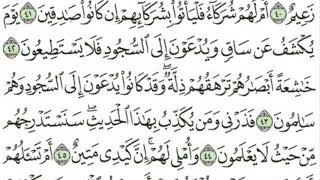 زَعِيمٌ ٤٠ أَمْ لَهُمْ شُرَكَاءُ فَلْيَأْتُوا۟ بِشُرَكَائِهِمْ إِن كَانُوا۟ صَٰدِقِينَ ٤١ يَوْمَ
يُكْشَفُ عَن سَاقٍ وَيُدْعَوْنَ إِلَى ٱلسُّجُودِ فَلَا يَسْتَطِيعُونَ ٤٢
خَٰشِعَةً أَبْصَٰرُهُمْ تَرْهَقُهُمْ ذِلَّةٌ ۖ وَقَدْ كَانُوا۟ يُدْعَوْنَ إِلَى ٱلسُّجُودِ وَهُمْ
سَٰلِمُونَ ٤٣ فَذَرْنِى وَمَن يُكَذِّبُ بِهَٰذَا ٱلْحَدِيثِ ۖ سَنَسْتَدْرِجُهُم
مِّنْ حَيْثُ لَا يَعْلَمُونَ ٤٤ وَأُمْلِى لَهُمْ ۚ إِنَّ كَيْدِى مَتِينٌ ٤٥ أَمْ تَسْـَٔلُهُمْ